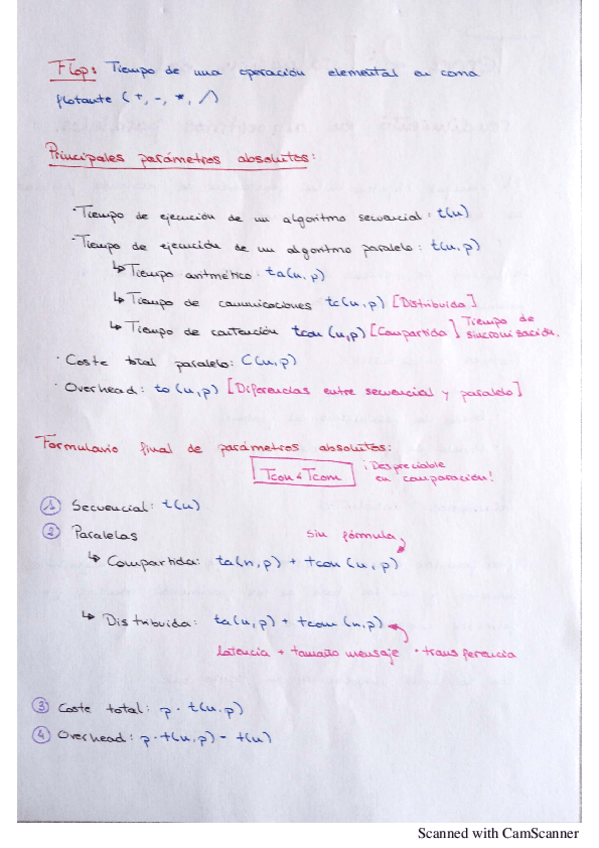 Flop: Tiempo de una operación elemental en coma
flotante (+, -, *, /)
Principales parámetros absolutos:
· Tiempo de ejecución de un algoritmo secuencial: t(n)
· Tiempo de ejecución de un algoritmo paralelo: t(n,p)
↳ Tiempo aritmético: ta(n,p)
↳ Tiempo de comunicaciones tc(n,p) [Distribuida]
↳ Tiempo de contención tcon(n,p) [Compartida] Tiempo de sincronización.
· Coste total paralelo: C(n,p)
· Overhead: to(n,p) [Diferencias entre secuencial y paralelo]
Formulario final de parámetros absolutos:
Tcon < Tcom ¡Despreciable en comparación!
① Secuencial: t(n)
② Paralelas
Sin fórmula
↳ Compartida: ta(n,p) + tcon(n,p)
↳ Distribuida: ta(n,p) + tcom(n,p)
latencia + tamaño mensaje · transferencia
③ Coste total: p · t(n,p)
④ Overhead: p · t(n,p) - t(n)
Scanned with CamScanner